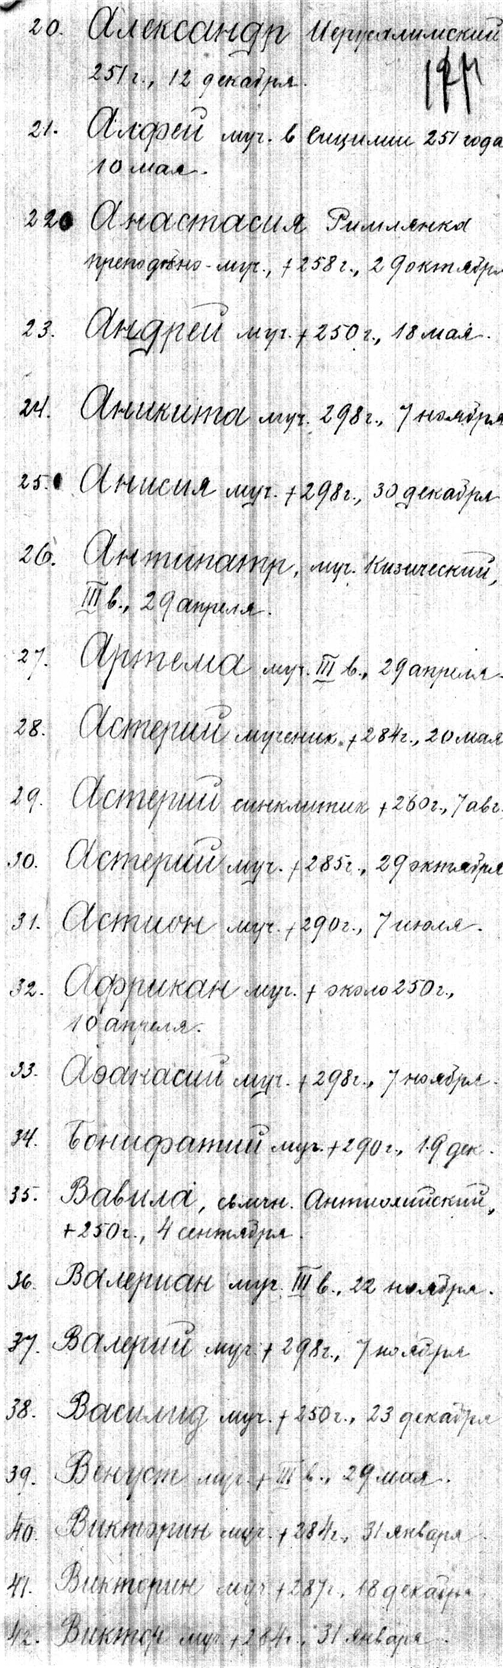 20. Александр Иерусалимский
251 г., 12 декабря.
21. Алфей муч. в Сицилии 251 года
10 мая.
22. Анастасия Римлянка
преподобно-муч., +258 г., 29 октября
23. Андрей муч. +250 г., 18 мая.
24. Аникита муч. 298 г., 7 ноября
25. Анисия муч. +298 г., 30 декабря
26. Антипатр, муч. Кизический,
III в., 29 апреля.
27. Артема муч. III в., 29 апреля.
28. Астерий мученик. +284 г., 20 мая
29. Астерий синклитик +260 г., 7 авг.
30. Астерий муч. +285 г., 29 октября
31. Астион муч. +290 г., 7 июля.
32. Африкан муч. + около 250 г.,
10 апреля.
33. Аѳанасий муч. +298 г., 7 ноября.
34. Бонифатий муч. +290 г., 19 дек.
35. Вавила, свмчн. Антиохийский,
+250 г., 4 сентября.
36. Валериан муч. III в., 22 ноября.
37. Валерий муч. +298 г., 7 ноября
38. Василид муч. +250 г., 23 декабря
39. Венуст муч. + III в., 29 мая.
40. Викторин муч. +284 г., 31 января
41. Викторин муч +287 г., 18 декабря
42. Виктор муч. +284 г., 31 января.